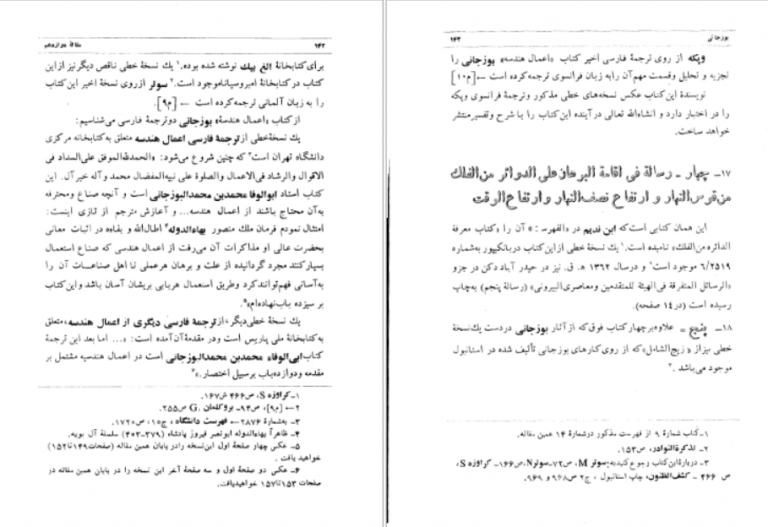 ۱۴۲
مقالهٔ دوازدهم
برای کتابخانهٔ الغ بیک نوشته شده بوده.۱ یک نسخهٔ خطی ناقص دیگر نیز از این
کتاب در کتابخانهٔ امبروسیانا موجود است.۲ سوتر از روی نسخهٔ اخیر این کتاب
را به زبان آلمانی ترجمه کرده است ← [م۹].
از کتاب «اعمال هندسهٔ» بوزجانی دو ترجمهٔ فارسی می‌شناسیم:
یک نسخهٔ خطی از ترجمهٔ فارسی اعمال هندسه متعلق به کتابخانه مرکزی
دانشگاه تهران است۳ که چنین شروع می‌شود: «الحمدلله الموفق علی السداد فی
الاقوال والرشاد فی الاعمال والصلوة علی نبیه المفضال محمد وآله خیر آل. این
کتاب استاد ابوالوفا محمدبن محمد البوزجانی است و آنچه صناع ومحترفه
به آن محتاج باشند از اعمال هندسه... و آغازش مترجم از تازی اینست:
امتثال نمودم فرمان ملک منصور بهاءالدوله۴ اطال الله و بقاءه در اثبات معانی
بحضرت عالی او مذاکرات آن می‌رفت از اعمال هندسی که صناع استعمال
بسیار کنند مجرد گردانیده از علت و برهان هرعملی تا اهل صناعات آن را
به آسانی فهم توانند کرد وطریق استعمال هر بابی بریشان آسان باشد و این کتاب
بر سیزده باب نهاده‌ام»۵.
یک نسخهٔ خطی دیگر، از ترجمهٔ فارسی دیگری از اعمال هندسه، متعلق
به کتابخانهٔ ملی پاریس است ودر مقدمهٔ آن آمده است: «... اما بعد این ترجمهٔ
کتاب ابی الوفاء محمدبن محمد البوزجانی است در اعمال هندسیه مشتمل بر
مقدمه و دوازده باب بر سبیل اختصار.»۶
۱ـ کراوزه S، ص۴۶۶ ش۱۶۷.
۲ـ ← [م۹]، ص۹۴ـ بروکلمان G، ص۲۵۵.
۳ـ به شمارهٔ ۲۸۷۶ ← فهرست دانشگاه ، ج۱۰، ص۱۷۲۰.
۴ـ ظاهراً بهاءالدوله ابونصر فیروز پادشاه (۳۷۹-۴۰۳) سلسلهٔ آل بویه.
۵ـ عکس چهار صفحهٔ اول این نسخه را در پایان همین مقاله (صفحات ۱۴۹ تا ۱۵۲)
خواهید یافت .
۶ـ عکس دو صفحهٔ اول و سه صفحهٔ آخر این نسخه را در پایان همین مقاله در
صفحات ۱۵۳ تا ۱۵۷ خواهید یافت.
بوزجانی
۱۴۳
وپکه از روی ترجمهٔ فارسی اخیر کتاب «اعمال هندسه» بوزجانی را
تجزیه و تحلیل وقسمت مهم آن را به زبان فرانسوی ترجمه کرده است ← [م۱۰]
نویسندهٔ این کتاب عکس نسخه‌های خطی مذکور وترجمهٔ فرانسوی وپکه
را در اختیار دارد و انشاءالله تعالی در آینده این کتاب را با شرح و تفسیر منتشر
خواهد ساخت.
۱۷ـ چهار ـ رسالة فی اقامة البرهان علی الدوائر من الفلک
من قوس النهار و ارتفاع نصف النهار و ارتفاع الوقت
این همان کتابی است که ابن ندیم در «الفهرس» آن را «کتاب معرفة
الدائره من الفلک» نامیده است.۱ یک نسخهٔ خطی از این کتاب در بانکیپور به شماره
۶/۲۵۱۹ موجود است۲ و در سال ۱۳۶۲ ه‍. ق. نیز در حیدر آباد دکن در جزو
«الرسائل المتفرقة فی الهیئة للمتقدمین ومعاصری البیرونی» (رسالهٔ پنجم) به چاپ
رسیده است (در ۱۴ صفحه).
۱۸ـ پنج ـ علاوه بر چهار کتاب فوق که از آثار بوزجانی در دست یک نسخهٔ
خطی نیز از «زیج الشامل» که از روی کارهای بوزجانی تألیف شده در استانبول
موجود می‌باشد.۳
۱ـ کتاب شمارهٔ ۹ از فهرست مذکور در شمارهٔ ۱۴ همین مقاله.
۲ـ تذکرة النوادر، ص۱۵۳.
۳ـ دربارهٔ این کتاب رجوع کنید به: سوتر M، ص۷۲ـ سوتر N، ص۱۶۶ـ کراوزه S،
ص ۴۶۶ ـ کشف الظنون، چاپ استانبول ، ج۲ ص۹۶۸ و ۹۶۹.